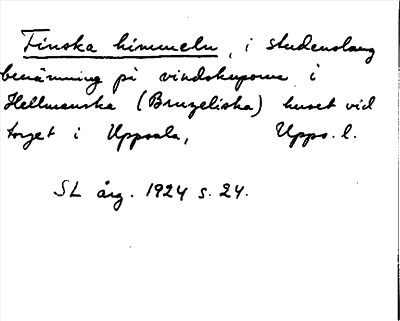 Finska himmeln, i studentslang
benämning på vindskuporna i
Hellmanska (Bruzeliska) huset vid
torget i Uppsala, Upps. l.
SL årg. 1924 s. 24.